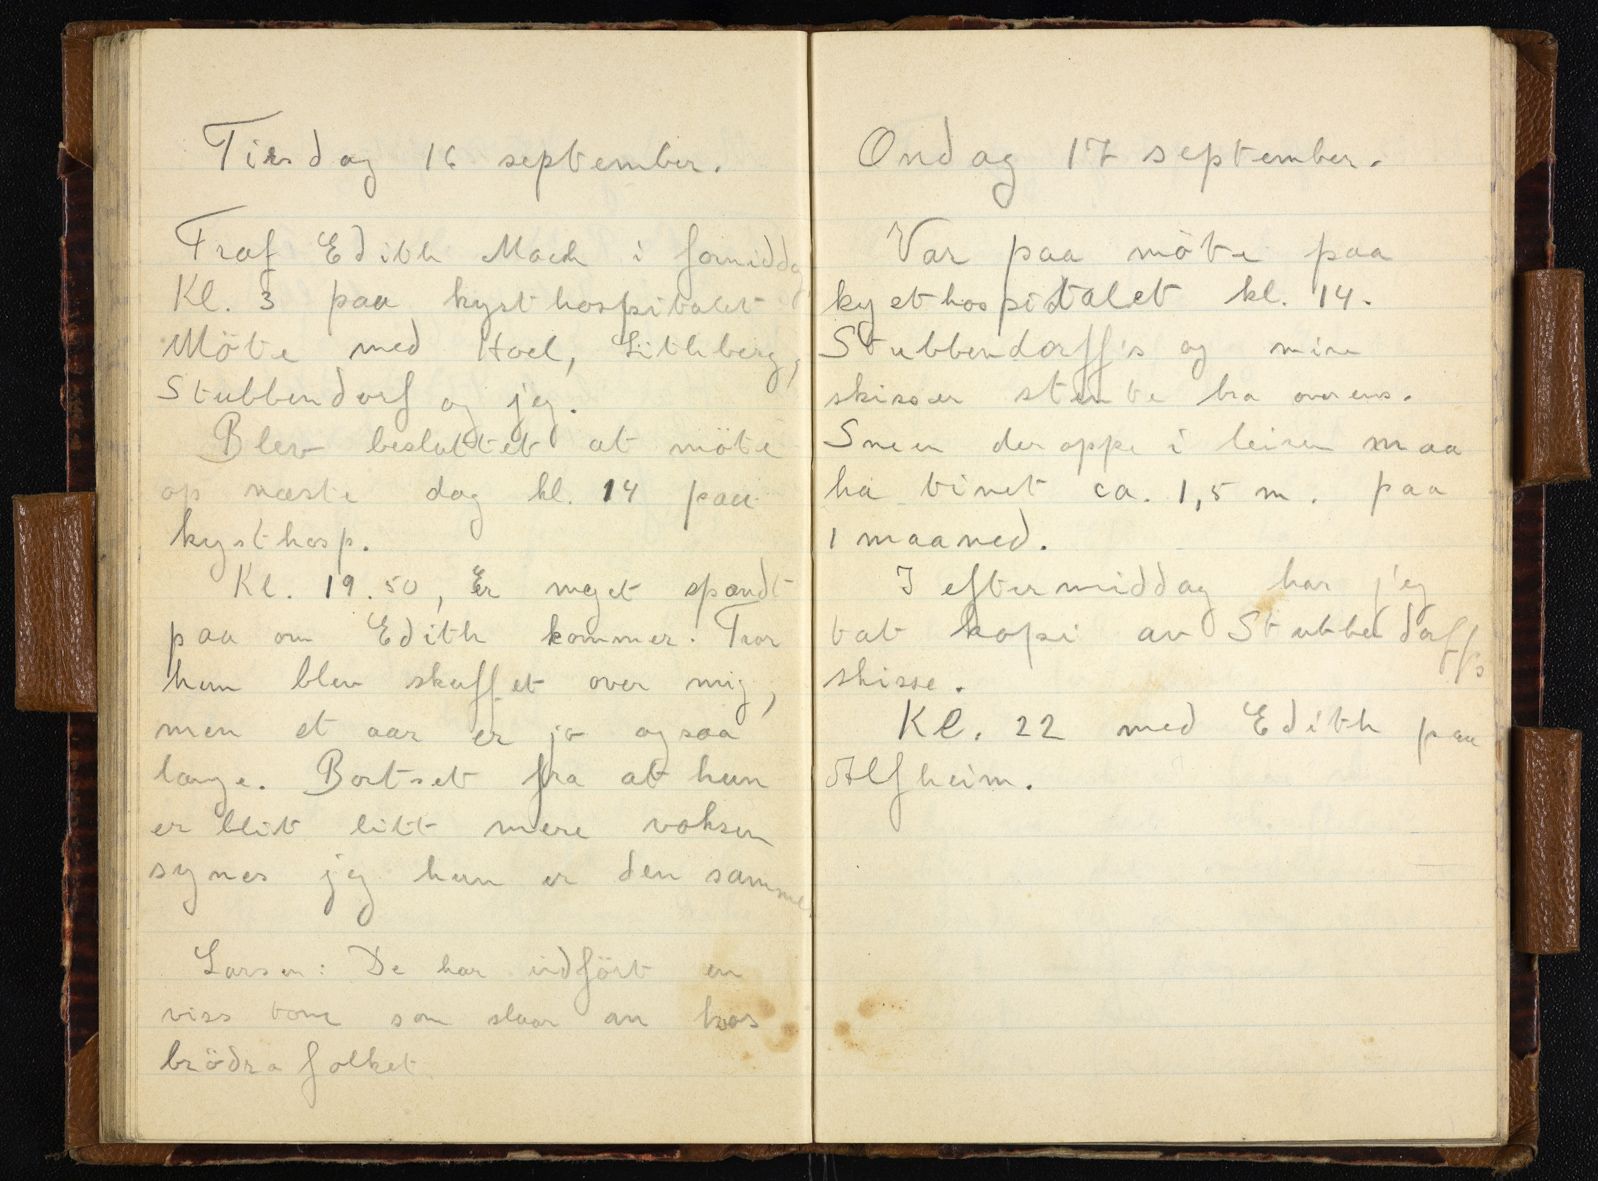 Tirsdag 16 september.
Traf Edith Mack i formiddag
Kl. 3 paa kysthospitalet
Möte med Hoel, Lithberg,
Stubbendorf og jeg.
Blev besluttet at möte
op næste dag kl. 14 paa
kysthosp.
Kl. 19.50, Er meget spændt
paa om Edith kommer. Tror
hun blev skuffet over mig,
men et aar er jo ogsaa
længe. Bortset fra at hun
er blit litt mere voksen
synes jeg hun er den samme.
Larsen: De har indfört en
viss tone som slaar an hos
brödrafolket
Ondag 17 september.
Var paa möte paa
kysthospitalet kl. 14.
Stubbendorff's og mine
skisser stemte bra overens.
Sneen deroppe i leiren maa
ha tinet ca. 1,5 m. paa
1 maaned.
I eftermiddag har jeg
tat kopi av Stubbendorffs
skisse.
Kl. 22 med Edith paa
Alfheim.